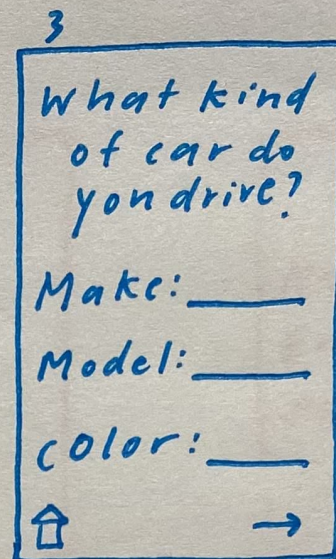 3
What kind
of car do
you drive?
Make:
Model:
color: